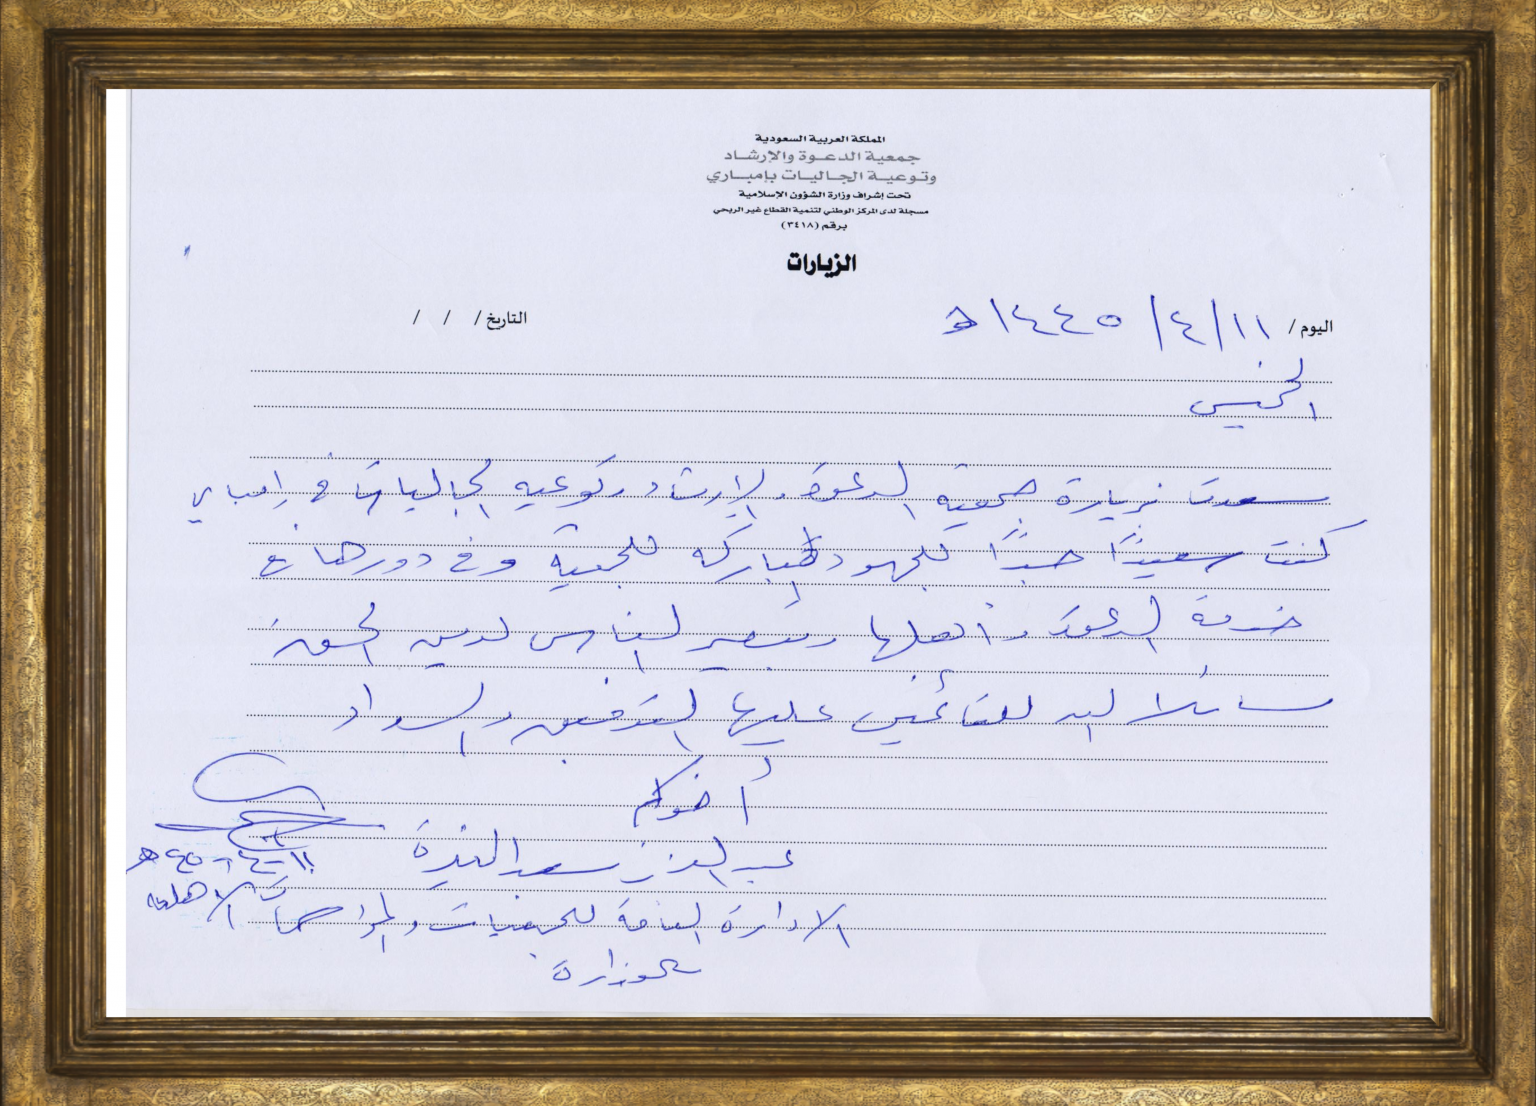 المملكة العربية السعودية
جمعية الدعوة والإرشاد
وتوعية الجاليات بإمباري
تحت إشراف وزارة الشؤون الإسلامية
مسجلة لدى المركز الوطني لتنمية القطاع غير الربحي
برقم (٣٤١٨)
الزيارات
اليوم / ١١/٤/١٤٤٥هـ التاريخ / / /
الخميس
سعدت بزيارة جمعية الدعوة والإرشاد وتوعية الجاليات في إمباري
كنت سعيدًا جدًا للجهود المباركة للجمعية وفي دورها في
خدمة الدعوة وأهلها وتبصير الناس لدين الحق
سائلا الله للقائمين عليها التوفيق والسداد
أخوكم
عبدالعزيز سعد
١١-٤-٤٥هـ
الادارة العامة للجمعيات والمؤسسات الأهلية
بالوزارة